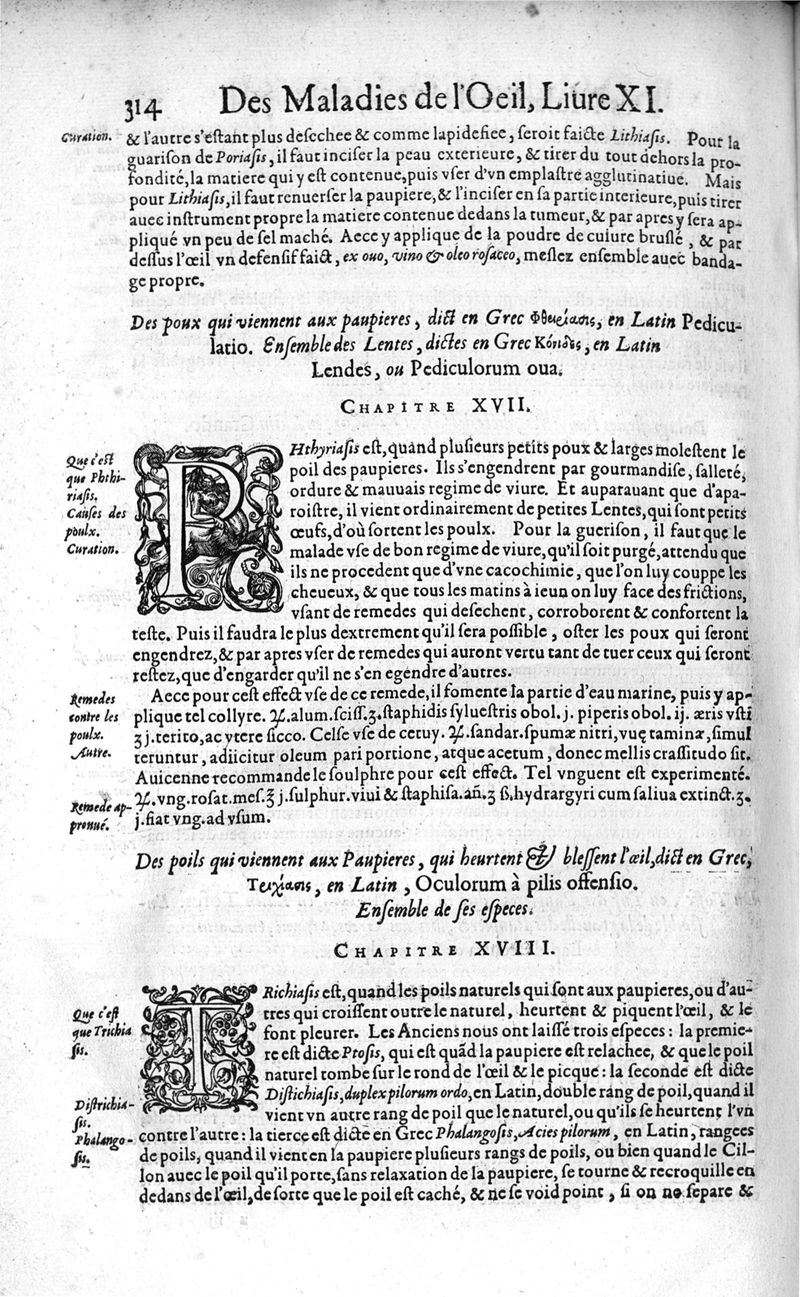 314 Des Maladies de l'Oeil, Liure XI.
Curation.
& l'autre s'estant plus desechee & comme lapidefiee, seroit faicte Lithiasis. Pour la
guarison de Poriasis, il faut inciser la peau exterieure, & tirer du tout dehors la pro-
fondité, la matiere qui y est contenue, puis vser d'vn emplastre agglutinatiue. Mais
pour Lithiasis, il faut renuerser la paupiere, & l'inciser en sa partie interieure, puis tirer
auec instrument propre la matiere contenue dedans la tumeur, & par apres y sera ap-
pliqué vn peu de sel maché. Aece y applique de la poudre de cuiure bruslé, & par
dessus l'œil vn defensif faict, ex ouo, vino & oleo rosaceo, meslez ensemble auec banda-
ge propre.
Des poux qui viennent aux paupieres, dict en Grec Φθειρίασις, en Latin Pedicu-
latio. Ensemble des Lentes, dictes en Grec Κόνιδες, en Latin
Lendes, ou Pediculorum oua.
CHAPITRE XVII.
Que c'est
que Phthi-
riasis.
Causes des
poulx.
Curation.
PHthyriasis est, quand plusieurs petits poux & larges molestent le
poil des paupieres. Ils s'engendrent par gourmandise, salleté,
ordure & mauuais regime de viure. Et auparauant que d'apa-
roistre, il vient ordinairement de petites Lentes, qui sont petits
œufs, d'où sortent les poulx. Pour la guerison, il faut que le
malade vse de bon regime de viure, qu'il soit purgé, attendu que
ils ne procedent que d'vne cacochimie, que l'on luy couppe les
cheueux, & que tous les matins à ieun on luy face des frictions,
vsant de remedes qui desechent, corroborent & confortent la
teste. Puis il faudra le plus dextrement qu'il sera possible, oster les poux qui seront
engendrez, & par apres vser de remedes qui auront vertu tant de tuer ceux qui seront
restez, que d'engarder qu'il ne s'en egendre d'autres.
Remedes
contre les
poulx.
Autre.
Remede ap-
prouué.
Aece pour cest effect vse de ce remede, il fomente la partie d'eau marine, puis y ap-
plique tel collyre. ℞. alum. sciss. ʒ. staphidis syluestris obol. j. piperis obol. ij. æris vsti
ʒ j. terito, ac ytere sicco. Celse vse de cetuy. ℞. sandar. spumæ nitri, vuę taminæ, simul
teruntur, adiicitur oleum pari portione, atque acetum, donec mellis crassitudo sit.
Auicenne recommande le soulphre pour cest effect. Tel vnguent est experimenté.
℞. vng. rosat. mes. ℥ j. sulphur. viui & staphisa. añ. ʒ ß. hydrargyri cum saliua extinct. ʒ.
j. fiat vng. ad vsum.
Des poils qui viennent aux Paupieres, qui heurtent & blessent l'œil, dict en Grec,
Τριχίασις, en Latin, Oculorum à pilis offensio.
Ensemble de ses especes.
CHAPITRE XVIII.
Que c'est
que Trichia
sis.
Districhia-
sis.
Phalango-
sis.
TRichiasis est, quand les poils naturels qui sont aux paupieres, ou d'au-
tres qui croissent outre le naturel, heurtent & piquent l'œil, & le
font pleurer. Les Anciens nous ont laissé trois especes: la premie-
re est dicte Ptosis, qui est quãd la paupiere est relachee, & que le poil
naturel tombe sur le rond de l'œil & le picque: la seconde est dicte
Distichiasis, duplex pilorum ordo, en Latin, double rang de poil, quand il
vient vn autre rang de poil que le naturel, ou qu'ils se heurtent l'vn
contre l'autre: la tierce est dicte en Grec Phalangosis, Acies pilorum, en Latin, rangees
de poils, quand il vient en la paupiere plusieurs rangs de poils, ou bien quand le Cil-
lon auec le poil qu'il porte, sans relaxation de la paupiere, se tourne & recroquille en
dedans de l'œil, de sorte que le poil est caché, & ne se void point, si on ne separe &